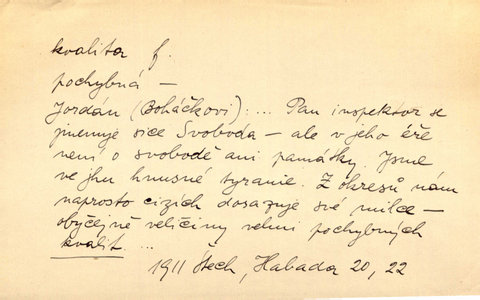 kvalita f.
pochybná —
Jordán (Boháčkovi): ... Pan inspektor se
jmenuje sice Svoboda — ale v jeho éře
není o svobodě ani památky. Jsme
ve jhu hnusné tyranie. Z okresů nám
naprosto cizích dosazuje své milce —
obyčejně veličiny velmi pochybných
kvalit ...
1911 Štech, Habada 20, 22